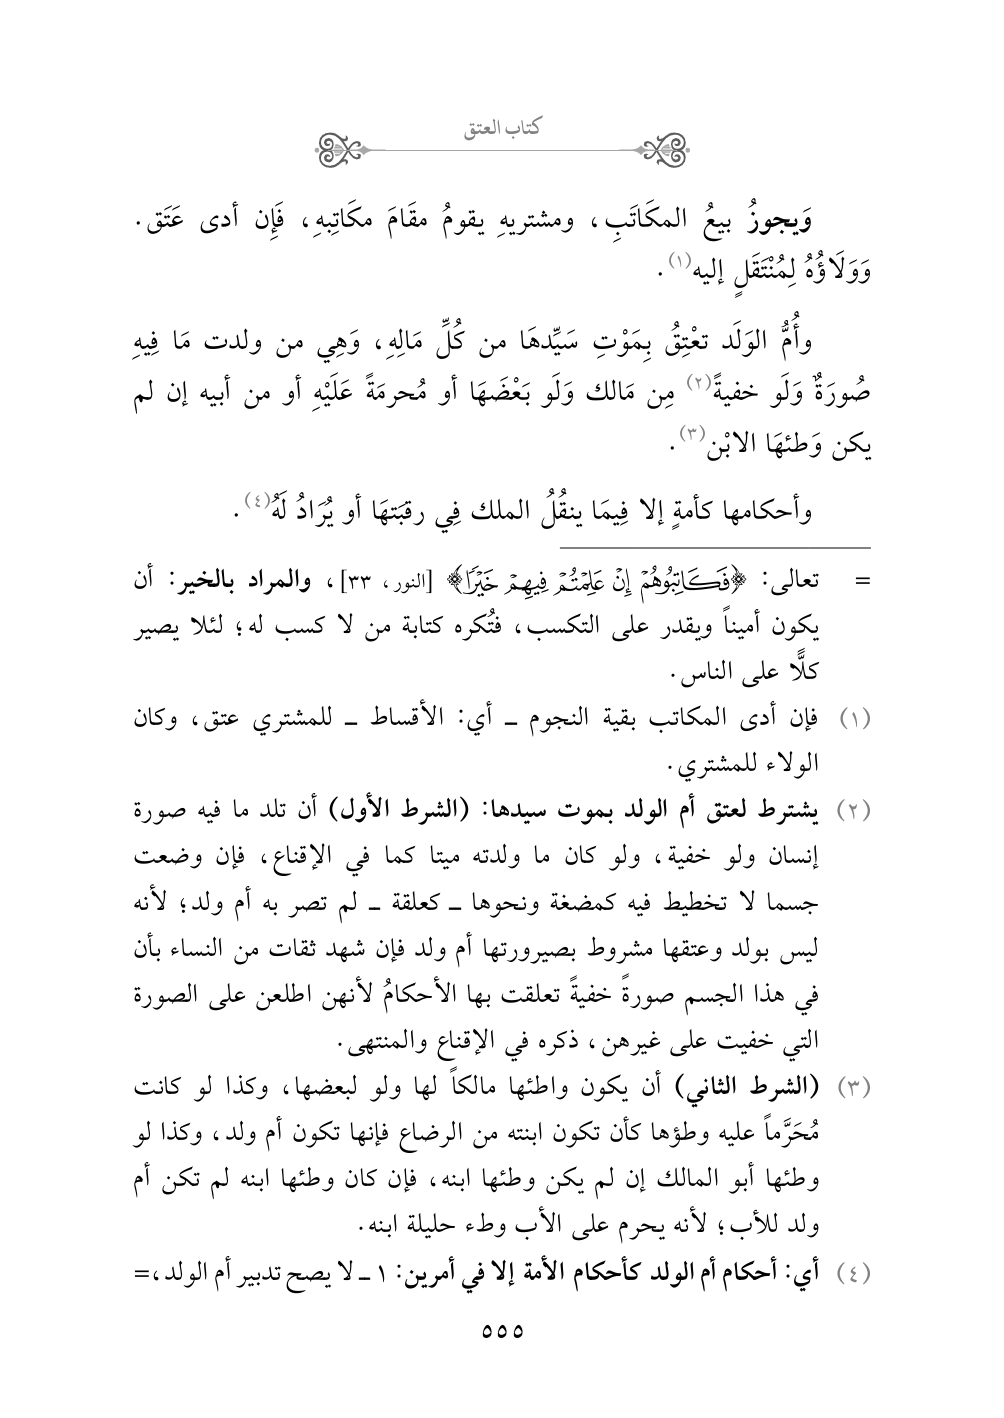 كتاب العتق
وَيجوزُ بيعُ المكَاتَبِ، ومشتريهِ يقومُ مقَامَ مكَاتِبهِ، فَإِن أدى عَتَق.
وَوَلَاؤُهُ لِمُنْتَقَلٍ إليه(١).
وأُمُّ الوَلَد تعْتِقُ بِمَوْتِ سَيِّدهَا من كُلِّ مَالِهِ، وَهِي من ولدت مَا فِيهِ
صُورَةٌ وَلَو خفيةً(٢) مِن مَالك وَلَو بَعْضَهَا أو مُحرمَةً عَلَيْهِ أو من أبيه إن لم
يكن وَطئهَا الابْن(٣).
وأحكامها كأمةٍ إلا فِيمَا ينقُلُ الملك فِي رقبَتهَا أو يُرَادُ لَهُ(٤).
= تعالى: ﴿فَكَاتِبُوهُمْ إِنْ عَلِمْتُمْ فِيهِمْ خَيْرًا﴾ [النور، ٣٣]، والمراد بالخير: أن
يكون أميناً ويقدر على التكسب، فتُكره كتابة من لا كسب له؛ لئلا يصير
كلًّا على الناس.
(١) فإن أدى المكاتب بقية النجوم ــ أي: الأقساط ــ للمشتري عتق، وكان
الولاء للمشتري.
(٢) يشترط لعتق أم الولد بموت سيدها: (الشرط الأول) أن تلد ما فيه صورة
إنسان ولو خفية، ولو كان ما ولدته ميتا كما في الإقناع، فإن وضعت
جسما لا تخطيط فيه كمضغة ونحوها ــ كعلقة ــ لم تصر به أم ولد؛ لأنه
ليس بولد وعتقها مشروط بصيرورتها أم ولد فإن شهد ثقات من النساء بأن
في هذا الجسم صورةً خفيةً تعلقت بها الأحكامُ لأنهن اطلعن على الصورة
التي خفيت على غيرهن، ذكره في الإقناع والمنتهى.
(٣) (الشرط الثاني) أن يكون واطئها مالكاً لها ولو لبعضها، وكذا لو كانت
مُحَرَّماً عليه وطؤها كأن تكون ابنته من الرضاع فإنها تكون أم ولد، وكذا لو
وطئها أبو المالك إن لم يكن وطئها ابنه، فإن كان وطئها ابنه لم تكن أم
ولد للأب؛ لأنه يحرم على الأب وطء حليلة ابنه.
(٤) أي: أحكام أم الولد كأحكام الأمة إلا في أمرين: ١ ــ لا يصح تدبير أم الولد،=
٥٥٥